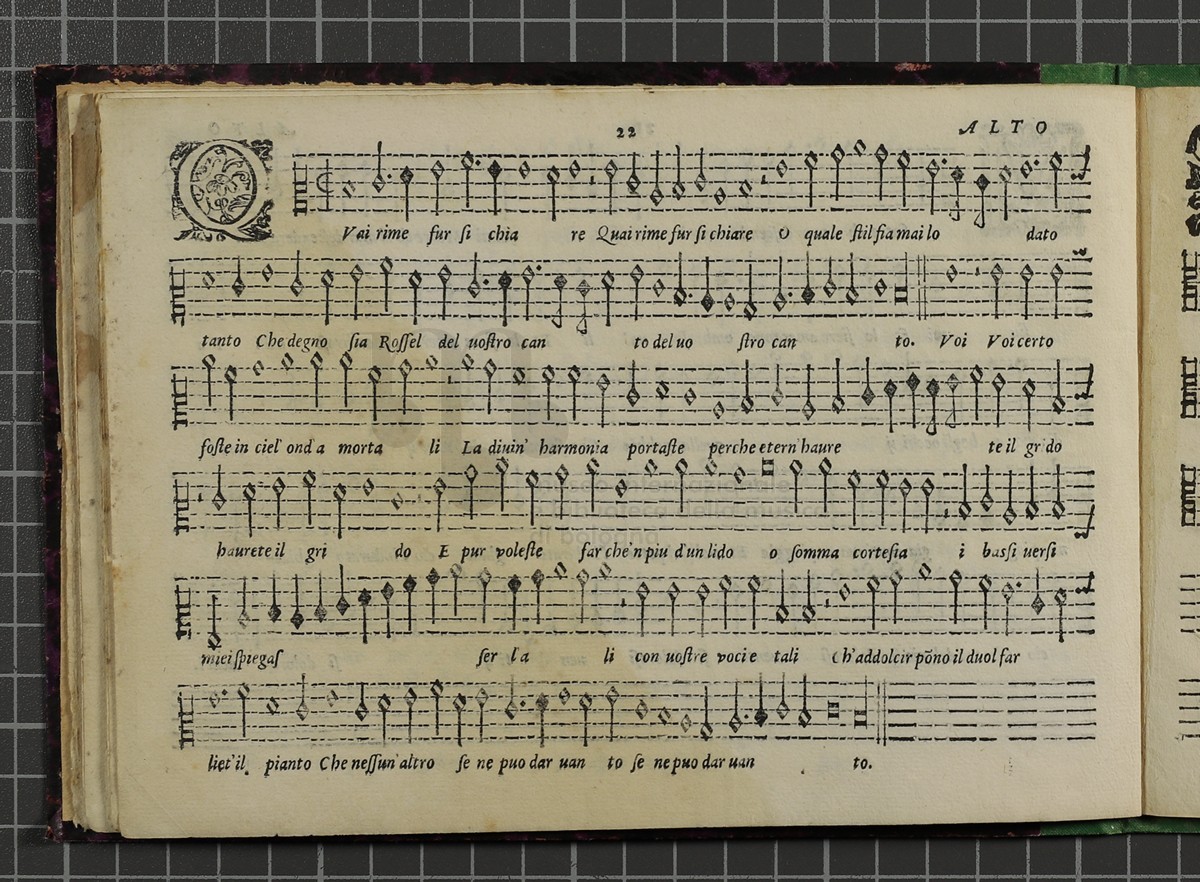 22
ALTO
QVai rime fur si chia re Quai rime fur si chiare O quale stil fia mai lo dato
tanto Che degno sia Rossel del uostro can to del uo stro can to. Voi Voi certo
foste in ciel' ond a morta li La diuin' harmonia portaste perche etern' haure te il grido
haurete il gri do E pur voleste far che'n piu d'un lido o somma cortesia i bassi uersi
miei spiegas ser l'a li con uostre voci e tali ch'addolcir põno il duol far
liet' il pianto Che nessun' altro se ne puo dar uan to se ne puo dar uan to.